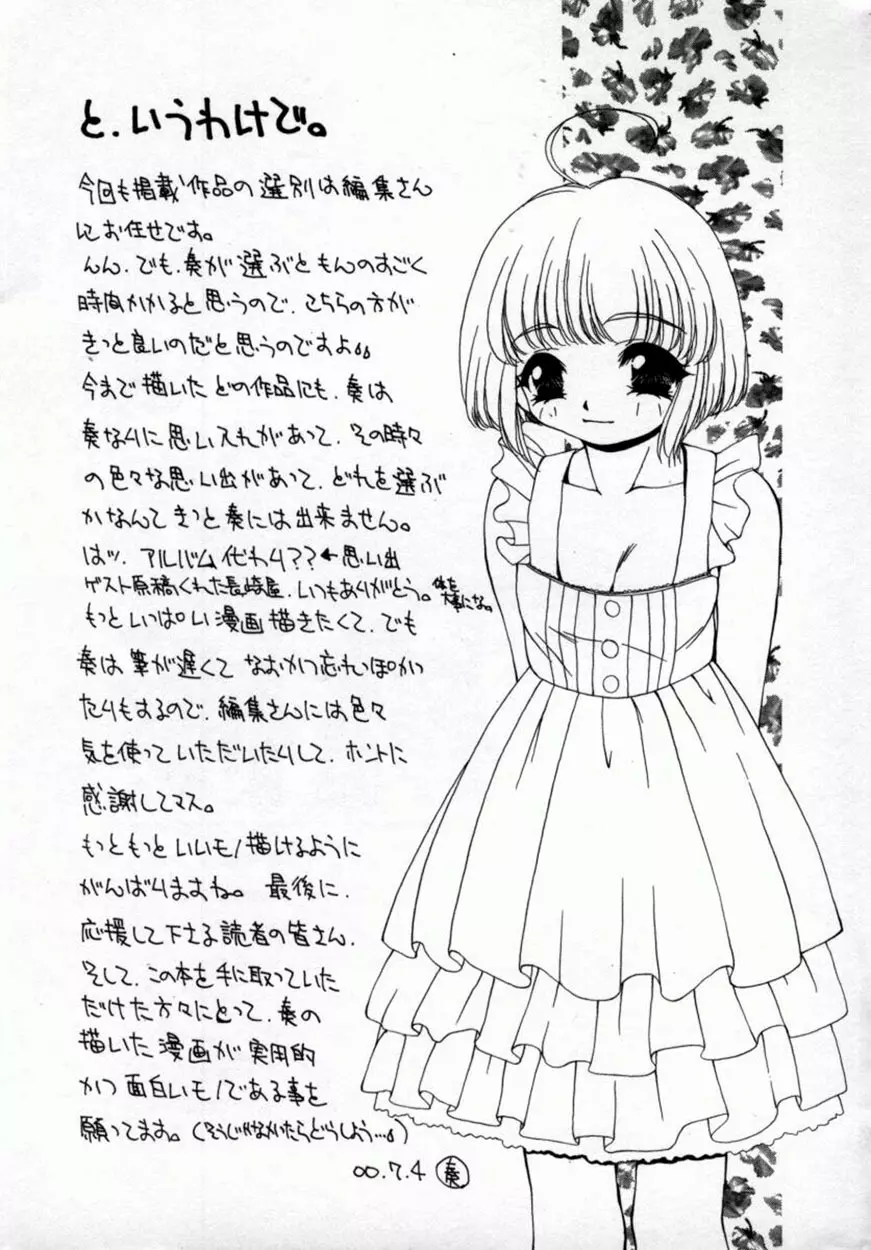 と、いうわけで。
今回も掲載作品の選別は編集さん
にお任せです。
んん、でも、奏が選ぶともんのすごく
時間かかると思うので、こちらの方が
きっと良いのだと思うのですよ。。
今まで描いたどの作品にも、奏は
奏なりに思い入れがあって、その時々
の色々な思い出があって、どれを選ぶ
かなんてきっと奏には出来ません。
はッ、アルバム代わり??←思い出
ゲスト原稿くれた長崎屋、いつもありがとう。体を
大事にな。
もっといっぱい漫画描きたくて、でも
奏は筆が遅くてなおかつ忘れっぽかっ
たりもするので、編集さんには色々
気を使っていただいたりして、ホントに
感謝してマス。
もっともっといいモノ描けるように
がんばりますね。最後に、
応援して下さる読者の皆さん、
そして、この本を手に取っていた
だけた方々にとって、奏の
描いた漫画が実用的
かつ面白いモノである事を
願ってます。(そうじゃなかったらどうしよう…。)
00.7.4 奏